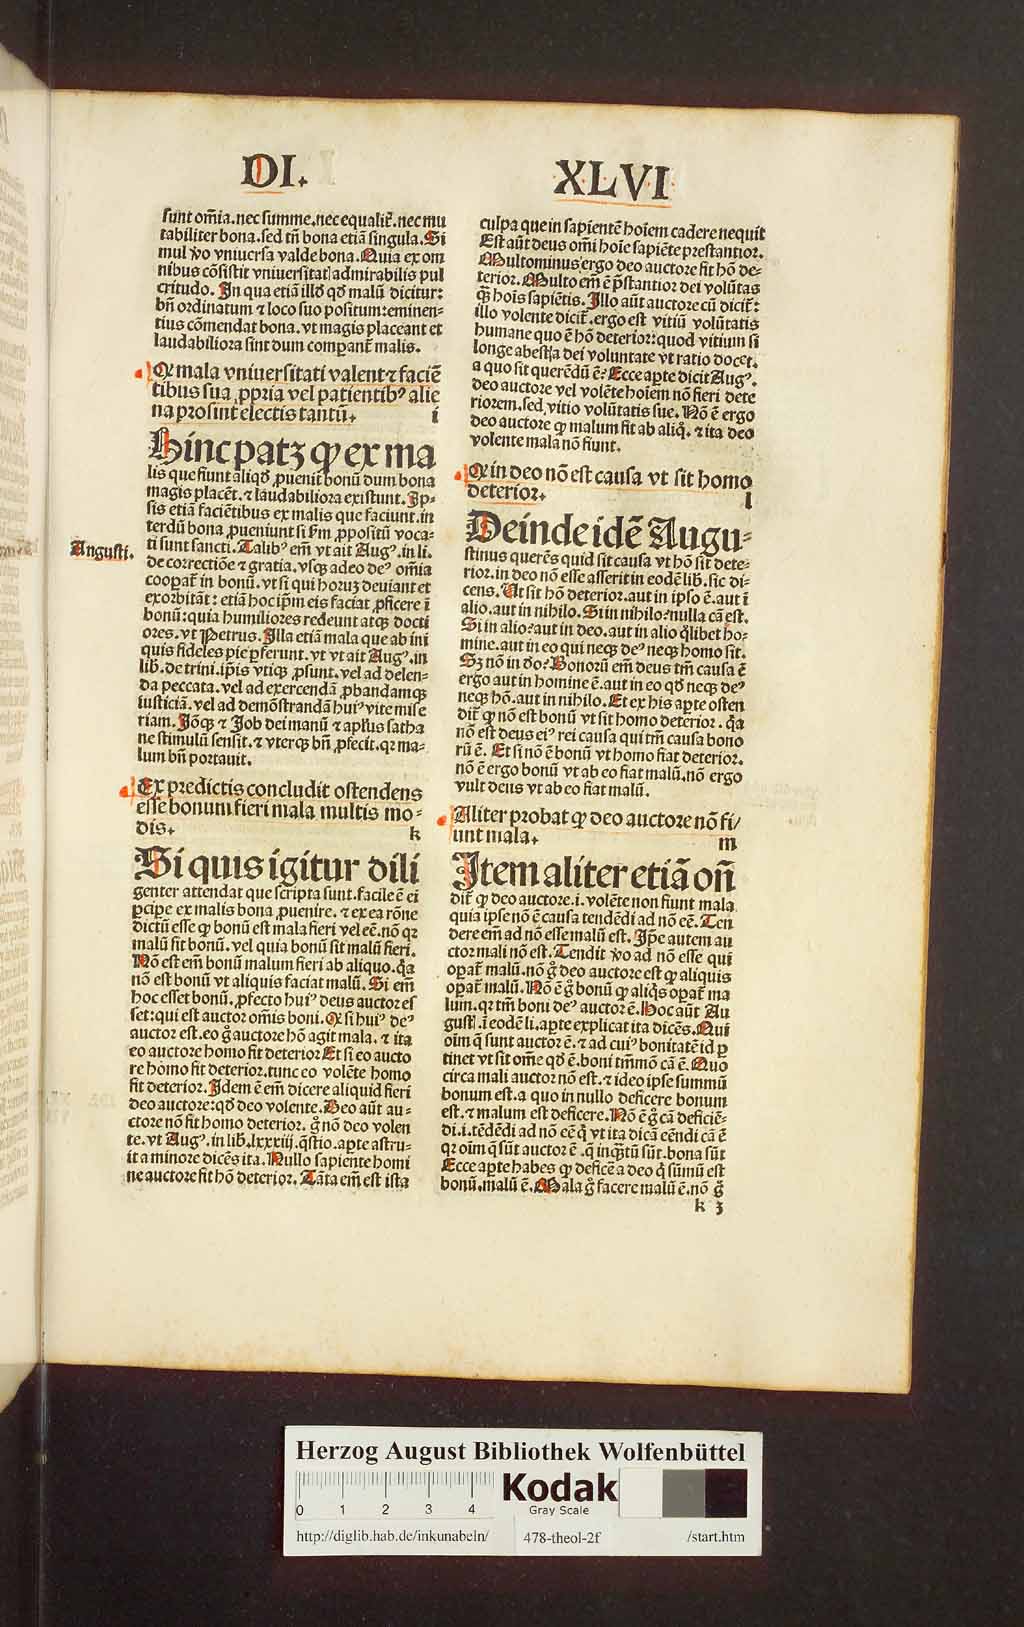 DI.
XLVI
sunt om̄ia.nec summe.nec equalit̄.nec mu
tabiliter bona.sed tñ bona etiā singula.Si
mul v̓o vniuersa valde bona.Quia ex om
nibus cōsistit vniuersitatꝭ admirabilis pul
critudo.In qua etiā illđ qđ malū dicitur:
bñ ordinatum ⁊ loco suo positum:eminen-
tius cōmendat bona.vt magis placeant et
laudabiliora sint dum comꝑant̄ malis.
Ꝙ mala vniuersitati valent ⁊ faciē
tibus sua ꝓpria vel patientibꝰ alie
na prosint electis tantū. i
Hinc patꝫ ꝙ ex ma
lis que fiunt aliqđ ꝓuenit bonū dum bona
magis placēt.⁊ laudabiliora existunt.Ip-
sis etiā faciētibus ex malis que faciunt.in
terdū bona ꝓueniunt si s̄m ꝓpositū voca-
ti sunt sancti.Talibꝰ em̄ vt ait Augꝰ.in li.
Augusti.
de correctiōe ⁊ gratia.vsqꝫ adeo deꝰ om̄ia
cooꝑat̄ in bonū.vt si qui horuꝫ deuiant et
exorbitāt:etiā hoc ip̄m eis faciat ꝓficere ī
bonū:quia humiliores redeunt atqꝫ docti
ores.vt Petrus.Illa etiā mala que ab ini
quis fideles pie ꝑferunt.vt vt ait Augꝰ.in
lib.de trini.ip̄is vtiqꝫ ꝓsunt.vel ad delen-
da peccata.vel ad exercendā ꝓbandamqꝫ
iusticiā.vel ad demōstrandā huiꝰ vite mise
riam.Iōqꝫ ⁊ Job dei manū ⁊ ap̄lus satha
ne stimulū sensit.⁊ vterqꝫ bñ ꝓfecit.qꝛ ma-
lum bñ portauit.
Ex predictis concludit ostendens
esse bonum fieri mala multis mo-
dis. k
Si quis igitur dili
genter attendat que scripta sunt.facile ē ei
ꝑcipe ex malis bona ꝓuenire.⁊ ex ea rōne
dictū esse ꝙ bonū est mala fieri vel eē.nō qꝛ
malū sit bonū.vel quia bonū sit malū fieri.
Nō est em̄ bonū malum fieri ab aliquo.q̄a
nō est bonū vt aliquis faciat malū.Si em̄
hoc esset bonū.ꝓfecto huiꝰ deus auctor es
set:qui est auctor om̄is boni.Ꝙ si huiꝰ deꝰ
auctor est.eo g̊ auctore hō agit mala.⁊ ita
eo auctore homo fit deterior Et si eo aucto
re homo fit deterior.tunc eo volēte homo
fit deterior.Idem ē em̄ dicere aliquid fieri
deo auctore:qđ deo volente.Deo aūt au-
ctore nō fit homo deterior.g̊ nō deo volen
te.vt Augꝰ.in lib.lxxxiij.q̄stio.aꝑte astru-
it a minore dicēs ita.Nullo sapiente homi
ne auctore fit hō deterior.Tāta em̄ est ista
culpa que in sapientē hoīem cadere nequit
Est aūt deus om̄i hoīe sapiēte prestantior.
Multominus ergo deo auctore fit hō de-
terior.Multo em̄ ē p̄stantior dei volūtas
q̄ꝫ hoīs sapiētis.Illo aūt auctore cū dicit̄:
illo volente dicit̄.ergo est vitiū volūtatis
humane quo ē hō deterior:quod vitium si
longe abest a dei voluntate vt ratio docet.
a quo sit querēdū ē:Ecce aꝑte dicit Augꝰ.
deo auctore vel volēte hoīem nō fieri dete
riorem.sed vitio volūtatis sue.Nō ē ergo
deo auctore ꝙ malum fit ab aliq̊.⁊ ita deo
volente mala nō fiunt.
Ꝙ in deo nō est causa vt sit homo
deterior. l
Deinde idē Augu-
stinus querēs quid sit causa vt hō sit dete-
rior.in deo nō esse asserit in eodē lib.sic di-
cens.Ut sit hō deterior.aut in ipso ē.aut ī
alio.aut in nihilo.Si in nihilo?nulla cā est.
Si in alio?aut in deo.aut in alio q̊libet ho-
mine.aut in eo qui neqꝫ deꝰ neqꝫ homo sit.
Sꝫ nō in d̄o?Bonorū em̄ deus tm̄ causa ē
ergo aut in homine ē.aut in eo qđ neqꝫ deꝰ
neqꝫ hō.aut in nihilo.Et ex his aꝑte osten
dit̄ ꝙ nō est bonū vt sit homo deterior.q̄a
nō est deus eiꝰ rei causa qui tm̄ causa bono
rū ē.Et si nō ē bonū vt homo fiat deterior.
nō ē ergo bonū vt ab eo fiat malū.nō ergo
vult deus vt ab eo fiat malū.
Aliter probat ꝙ deo auctore nō fi/
unt mala. m
Item aliter etiā oñ
dit̄ ꝙ deo auctore.i.volēte non fiunt mala
quia ipse nō ē causa tendēdi ad nō eē.Ten
dere em̄ ad nō esse malū est.Ip̄e autem au
ctor mali nō est.Tendit v̓o ad nō esse qui
oꝑat̄ malū.nō g̊ deo auctore est ꝙ aliquis
oꝑat̄ malū.Nō ē g̊ bonū ꝙ aliq̊s oꝑat̄ ma
lum.qꝛ tm̄ boni deꝰ auctor ē.Hoc aūt Au
gustꝭ.ī eodē li.aꝑte explicat ita dicēs.Qui
oīm q̄ sunt auctor ē.⁊ ad cuiꝰ bonitatē id ꝑ
tinet vt sit om̄e qđ ē.boni tm̄mō cā ē.Quo
circa mali auctor nō est.⁊ ideo ipse summū
bonum est.a quo in nullo deficere bonum
est.⁊ malum est deficere.Nō ē g̊ cā deficiē-
di.i.tēdēdi ad nō eē q̇ vt ita dicā eēndi cā ē
qꝛ oīm q̄ sūt auctor ē.q̄ inqꝫtū sūt.bona sūt
Ecce aꝑte habes ꝙ deficē a deo q̇ sūmū est
bonū.malū ē.Mala g̊ facere malū ē.nō g̊
k 3
Herzog August Bibliothek Wolfenbüttel
0 1 2 3 4
Kodak
Gray Scale
http://diglib.hab.de/inkunabeln/ 478-theol-2f /start.htm